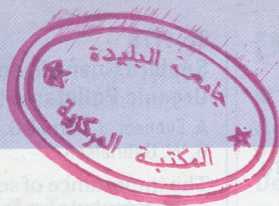 جامعة البليدة
المكتبة المركزية